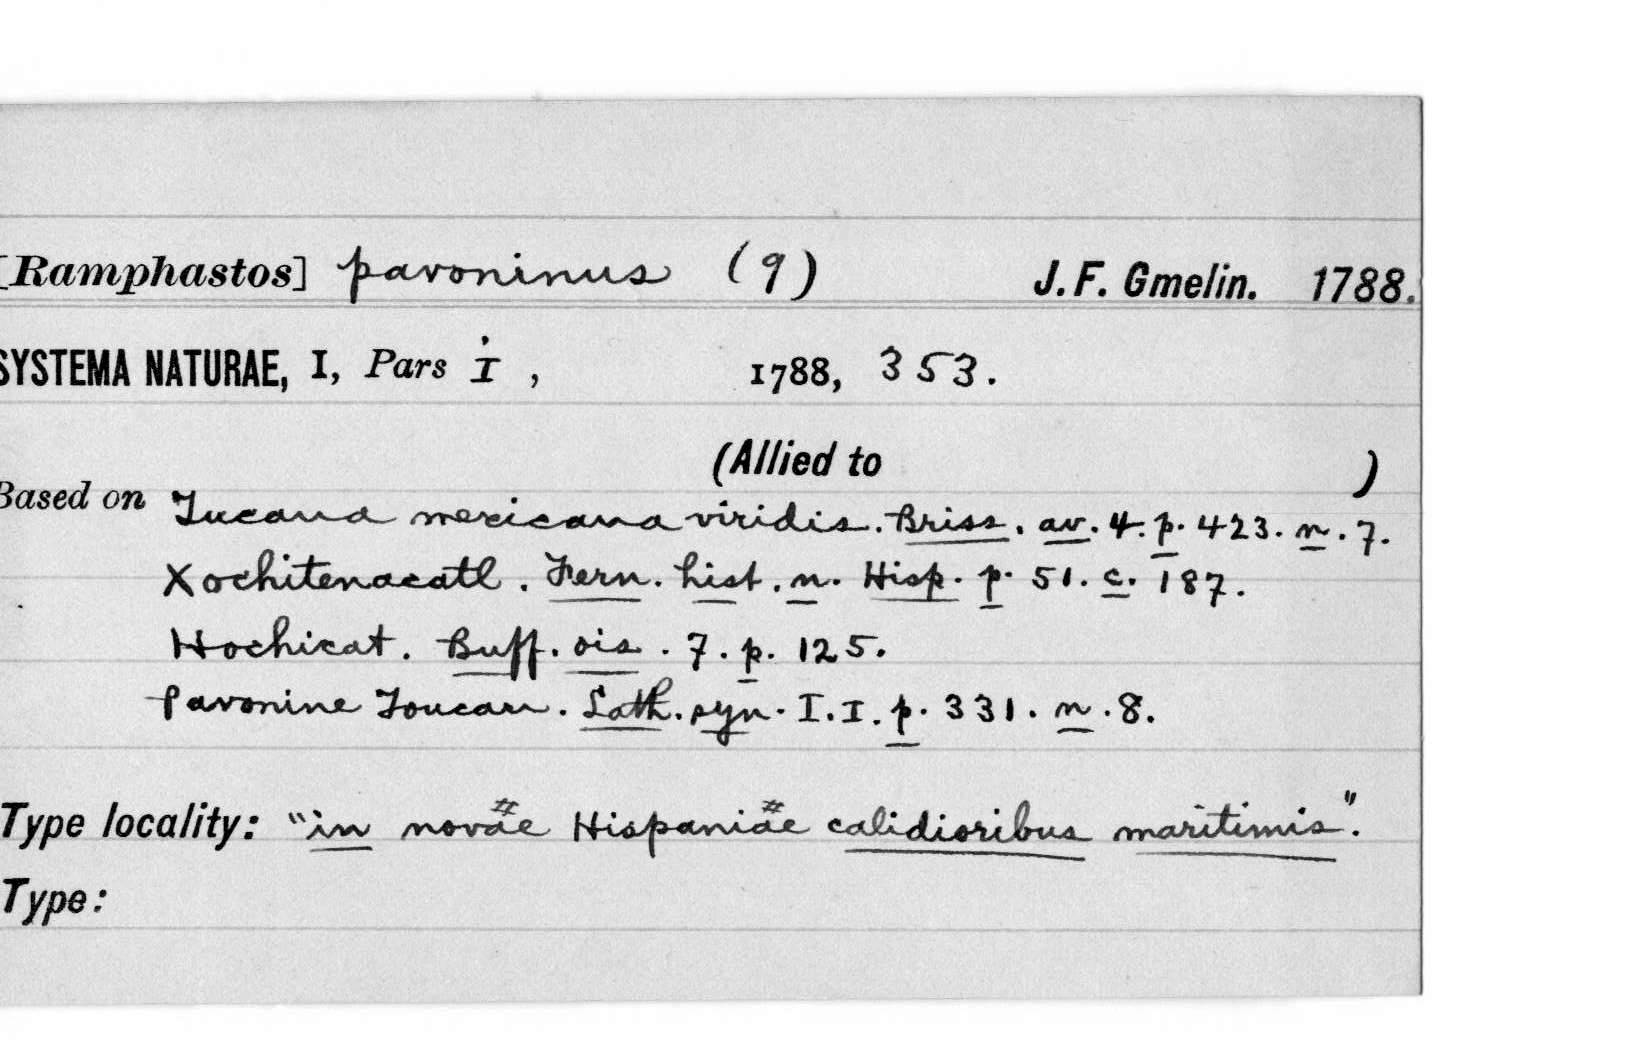 [Ramphastos] pavoninus (9) J. F. Gmelin. 1788.
SYSTEMA NATURAE, I, Pars I, 1788, 353.
(Allied to )
Based on Tucana mexicana viridis. Briss. av. 4. p. 423. n. 7.
Xochitenacatl. Fern. hist. n. Hisp. p. 51. c. 187.
Hochicat. Buff. ois. 7. p. 125.
Pavonine Toucan. Lath. syn. I. I. p. 331. n. 8.
Type locality: "in novae Hispaniae calidioribus maritimis".
Type: